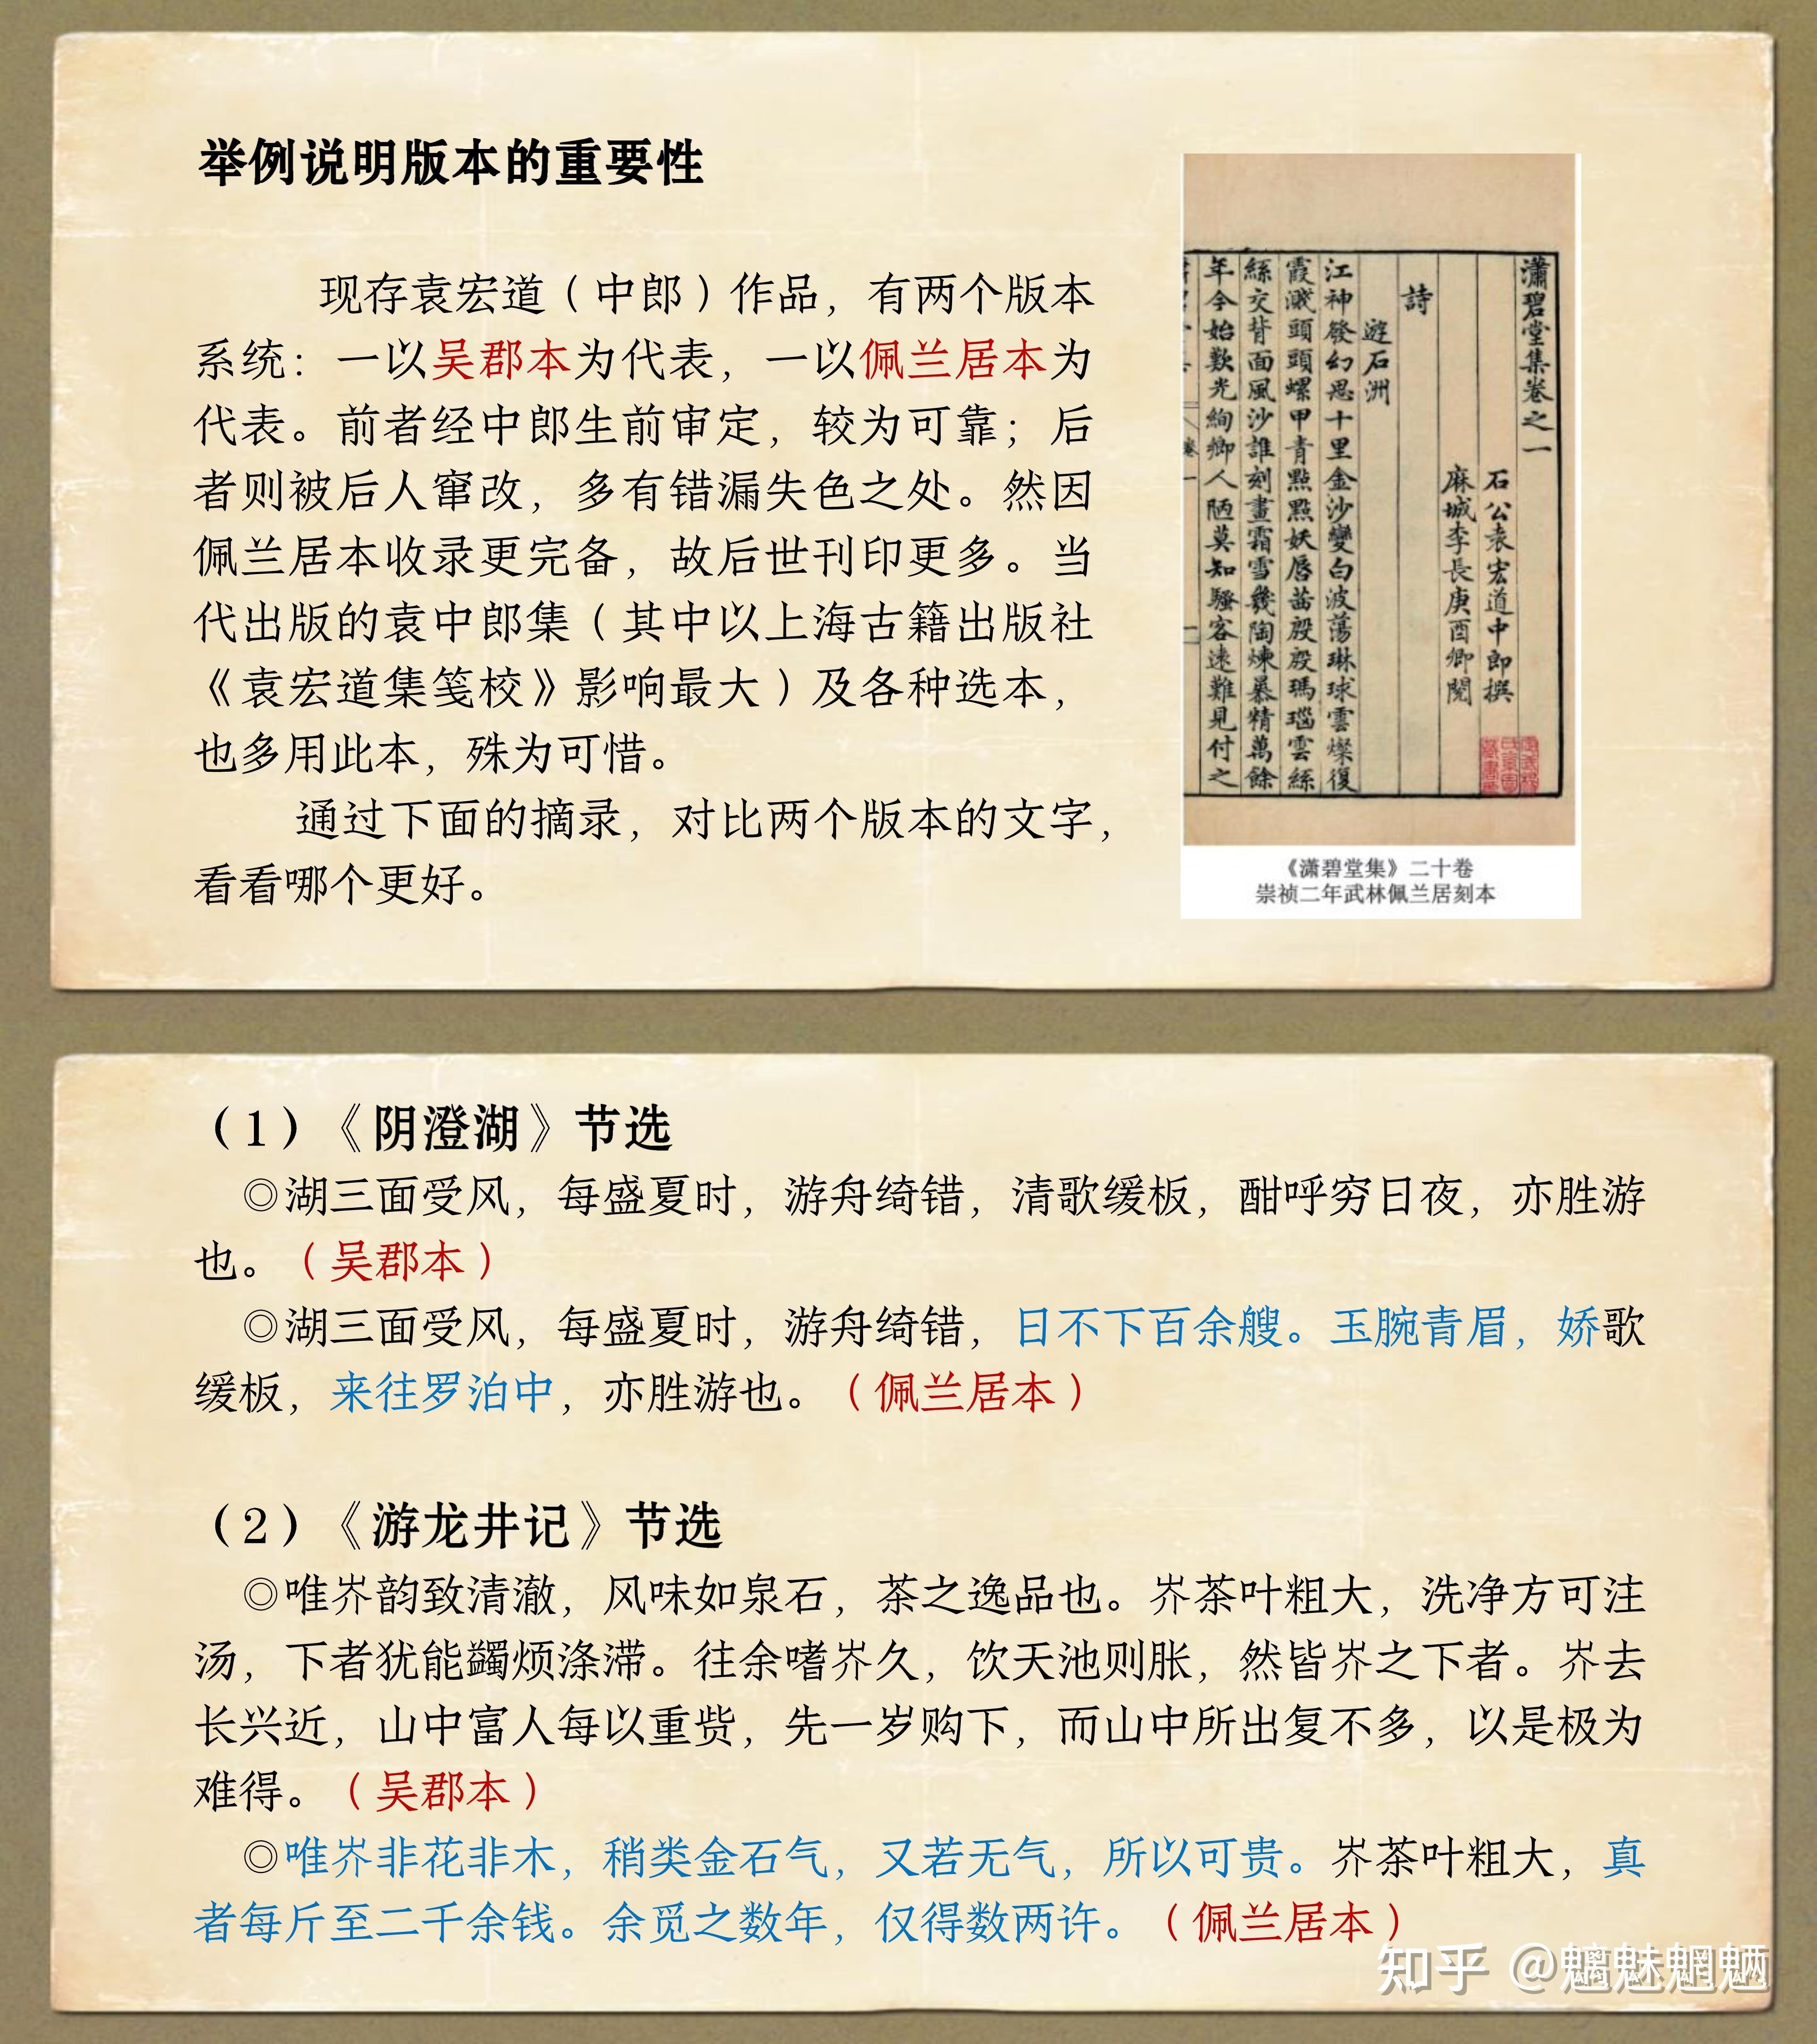 举例说明版本的重要性
现存袁宏道（中郎）作品，有两个版本
系统：一以吴郡本为代表，一以佩兰居本为
代表。前者经中郎生前审定，较为可靠；后
者则被后人窜改，多有错漏失色之处。然因
佩兰居本收录更完备，故后世刊印更多。当
代出版的袁中郎集（其中以上海古籍出版社
《袁宏道集笺校》影响最大）及各种选本，
也多用此本，殊为可惜。
通过下面的摘录，对比两个版本的文字，
看看哪个更好。
瀟碧堂集卷之一
石公袁宏道中郎撰
麻城李長庚酉卿閱
詩
遊石洲
江神發幻思十里金沙變白波蕩琳球雲燦復
霞濺頭頭螺甲青點點妖唇茁殷殷瑪瑙雲絲
絲交背面風沙誰刻畫霜雪幾陶煉暴精萬餘
年今始歎光絢鄉人陋莫知騷客遠難見付之
《瀟碧堂集》二十卷
崇祯二年武林佩兰居刻本
（1）《阴澄湖》节选
◎湖三面受风，每盛夏时，游舟绮错，清歌缓板，酣呼穷日夜，亦胜游
也。（吴郡本）
◎湖三面受风，每盛夏时，游舟绮错，日不下百余艘。玉腕青眉，娇歌
缓板，来往罗泊中，亦胜游也。（佩兰居本）
（2）《游龙井记》节选
◎唯岕韵致清澈，风味如泉石，茶之逸品也。岕茶叶粗大，洗净方可注
汤，下者犹能蠲烦涤滞。往余嗜岕久，饮天池则胀，然皆岕之下者。岕去
长兴近，山中富人每以重赀，先一岁购下，而山中所出复不多，以是极为
难得。（吴郡本）
◎唯岕非花非木，稍类金石气，又若无气，所以可贵。岕茶叶粗大，真
者每斤至二千余钱。余觅之数年，仅得数两许。（佩兰居本）
知乎 @魑魅魍魉